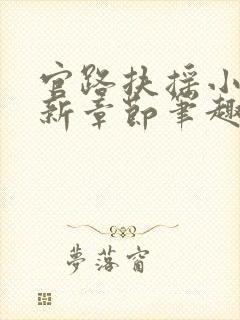 官路扶摇小
新章节笔趣
夢落窗